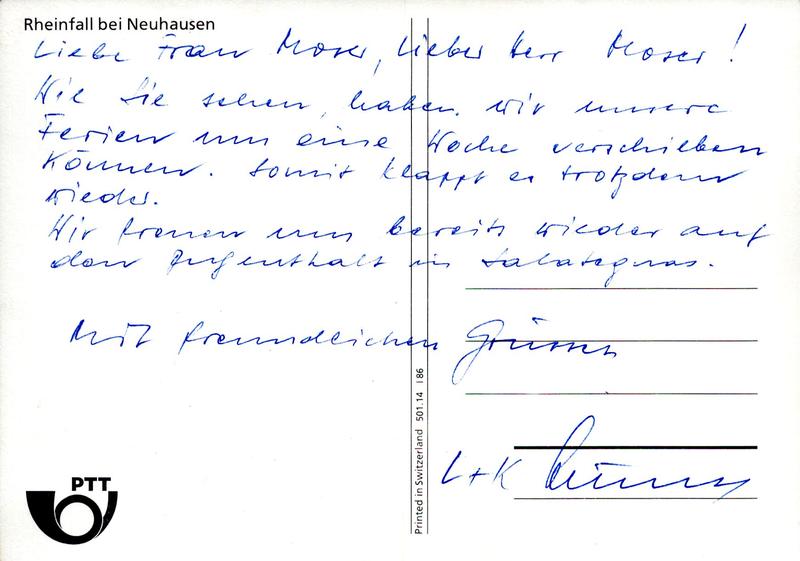 Rheinfall bei Neuhausen
Liebe Frau Moser, Lieber Herr Moser!
Wie Sie sehen, haben wir unsere
Ferien um eine Woche verschieben
können. Somit klappt es trotzdem
wieder.
Wir freuen uns bereits wieder auf
den Aufenthalt in
Mit freundlichen Grüssen
L+K
PTT
Printed in Switzerland 501.14 I 86